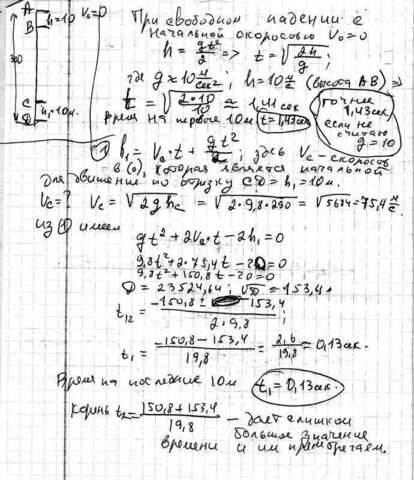 A
B
h=10
V₀=0
300
C
D
h₁=10м.
При свободном падении с
начальной скоростью V₀=0
h = gt²/2 => t = √(2h/g);
где g≈10 м/сек²; h=10 (высота AB) =>
t = √(2·10/10) ≈ 1,41 сек
(точнее 1,43 сек, если не считать g=10)
Время на первые 10м t=1,43сек
① h₁ = Vc·t + gt²/2; здесь Vc – скорость
в (·)C, которая является начальной
для движения по отрезку CD = h₁ = 10м.
Vc=? Vc = √(2ghc) = √(2·9,8·290) = √5684 = 75,4 м/с
из ① имеем
gt²+2Vc·t-2h₁=0
9,8t²+2·75,4t-20=0
9,8t²+150,8t-20=0
D = 23524,64; √D = 153,4
t₁₂ = (-150,8 ± 153,4)/(2·9,8);
t₁ = (-150,8-153,4)/19,8 = 2,6/19,8 = 0,13сек.
Время на последние 10м t₁=0,13сек.
Корень t₂ = (150,8+153,4)/19,8 – дает слишком
большое значение
времени и им пренебрегаем.